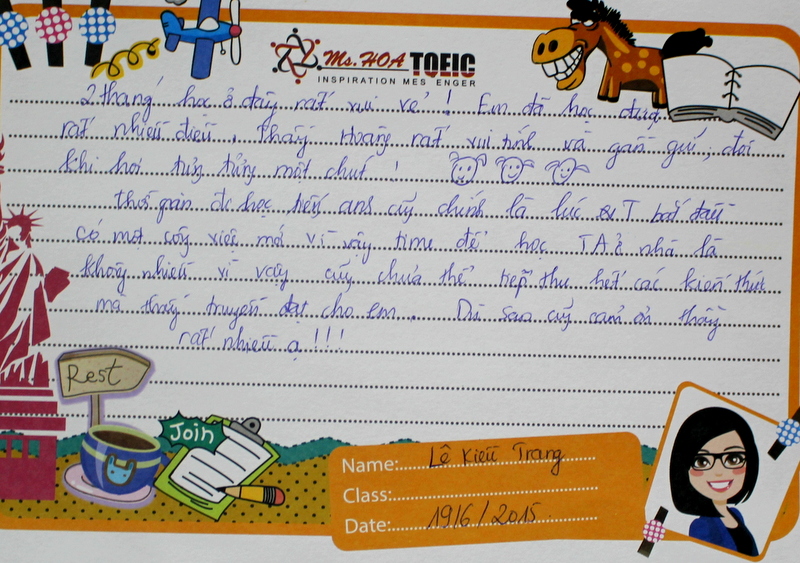 Ms. HOA TOEIC
INSPIRATION MESSENGER
2 tháng học ở đây rất vui vẻ! Em đã học được
rất nhiều điều. Thầy Hoàng rất vui tính và gần gũi, đôi
khi hơi tưng tửng một chút!
thời gian đc học tiếng anh cũng chính là lúc bắt đầu
có một công việc mới vì vậy time để học TA ở nhà là
không nhiều vì vậy cũng chưa thể tiếp thu hết các kiến thức
mà thầy truyền đạt cho em. Dù sao cũng cảm ơn thầy
rất nhiều ạ!!!
Rest
Join
Name: Lê Kiều Trang
Class:
Date: 19/6/2015